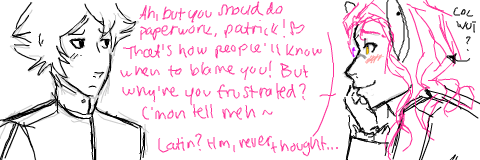 Ah, but you should do
paperwork, patrick! ♡
That's how people'll know
when to blame you! But
why're you frustrated?
C'mon tell meh ~
Latin? Hm, never thought...
LOL
WUT
?